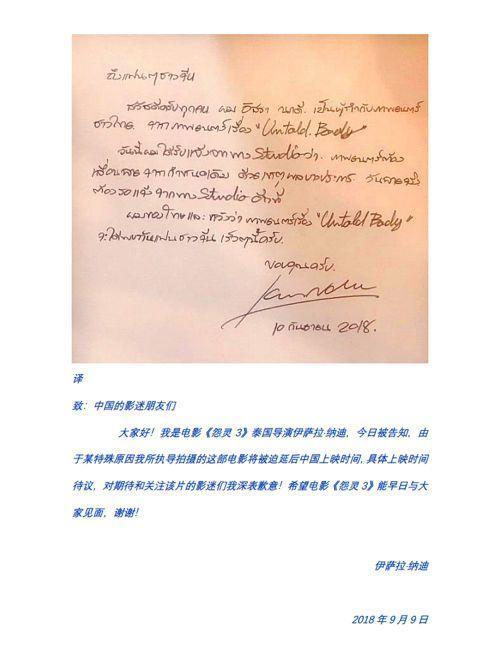 ถึงแฟนๆชาวจีน
สวัสดีครับทุกคน ผม อิสรา นาดี เป็นผู้กำกับภาพยนตร์
ชาวไทย จากภาพยนตร์เรื่อง "Untold Body"
วันนี้ผมได้รับแจ้งจากทาง Studio ว่า ภาพยนตร์ต้อง
เลื่อนฉาย จากกำหนดเดิม ด้วยเหตุผลบางประการ วันฉายจึง
ต้องรอแจ้งจากทาง Studio อีกที
ผมขอโทษและหวังว่า ภาพยนตร์เรื่อง "Untold Body"
จะได้พบกับแฟนชาวจีน เร็วๆนี้ครับ.
ขอบคุณครับ.
10 กันยายน 2018.
译
致：中国的影迷朋友们
大家好！我是电影《怨灵 3》泰国导演伊萨拉·纳迪，今日被告知，由
于某特殊原因我所执导拍摄的这部电影将被迫延后中国上映时间，具体上映时间
待议，对期待和关注该片的影迷们我深表歉意！希望电影《怨灵 3》能早日与大
家见面，谢谢！
伊萨拉·纳迪
2018 年 9 月 9 日